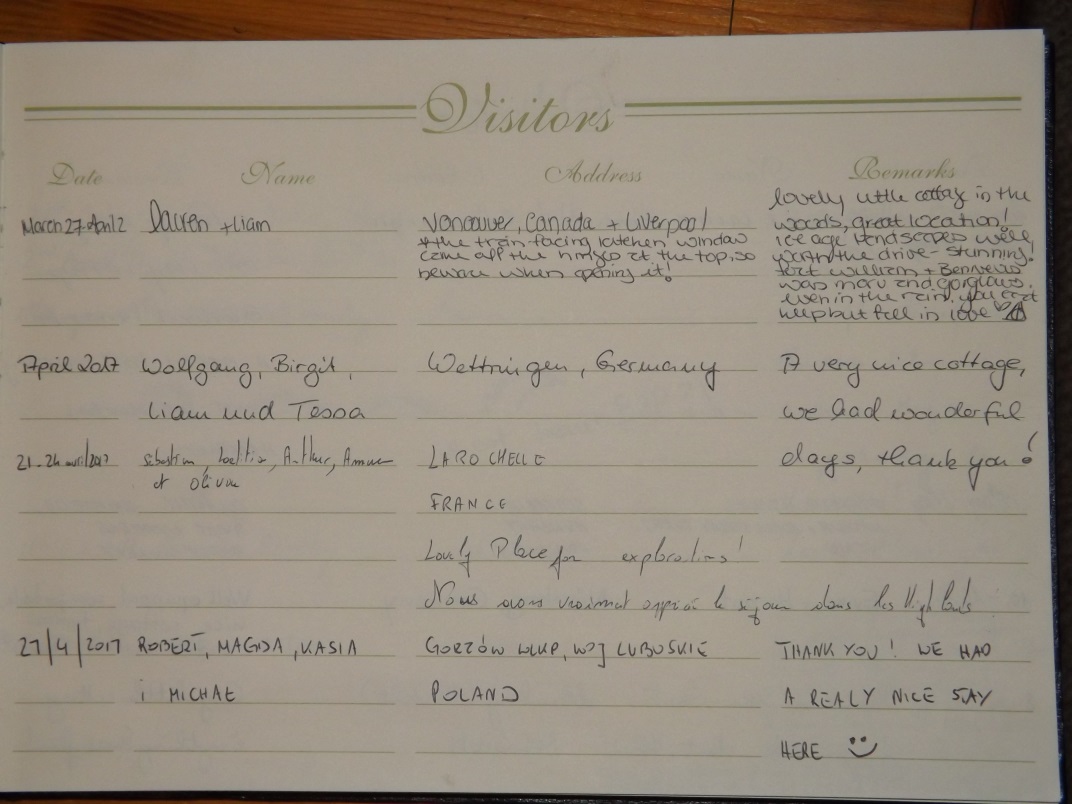 Visitors
Date Name Address Remarks
March 27-April 2 Darren + Liam Vancouver, Canada + Liverpool lovely little cottag in the
woods, great location!
*the train facing kitchen window ice age landscapes well
came off the hinges at the top, so worth the drive - stunning!
beware when opening it! fort william + Bennevis
was marv and gorgeous.
even in the rain, you cant
help but fall in love
April 2017 Wolfgang, Birgit, Wettringen, Germany A very nice cottage,
Liam und Tessa we had wonderful
21-24 avril 2017 Sébastien, Laetitia, Arthur, LA ROCHELLE days, thank you!
et Olivia
FRANCE
Lovely Place for explorations!
Nous avons vraiment apprécié le séjour dans les Highlands
27/4/2017 ROBERT, MAGDA, KASIA GORZÓW WLKP, WOJ LUBUSKIE THANK YOU! WE HAD
i MICHAŁ POLAND A REALY NICE SAY
HERE